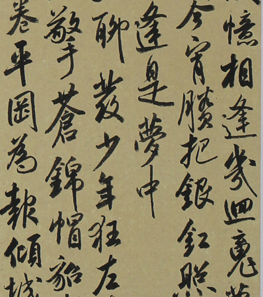 憶相逢幾迴魂夢
今宵賸把銀釭照
逢是夢中
聊發少年狂左
擎蒼錦帽貂
卷平岡為報傾城